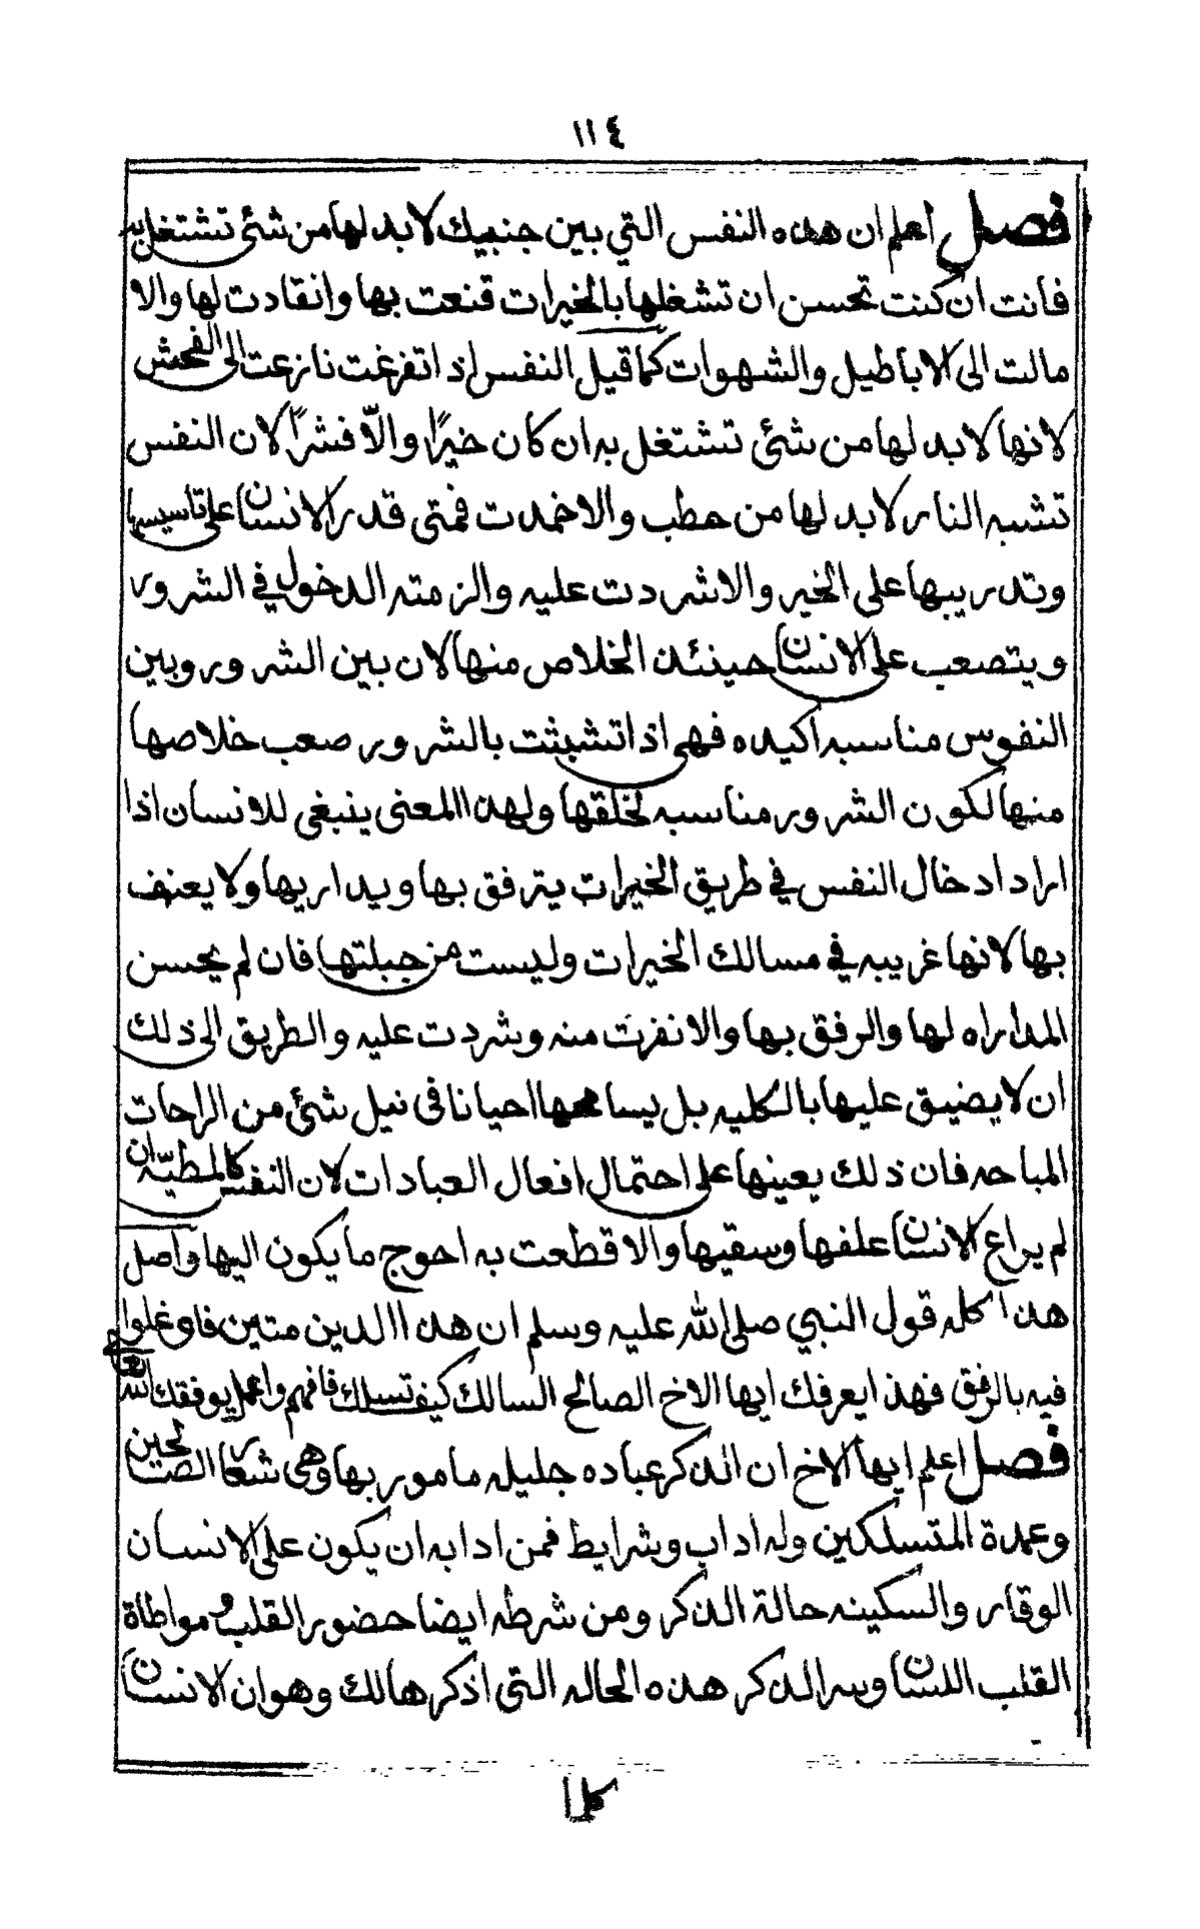 ١١٤
فصل اعلم ان هذه النفس التي بين جنبيك لابد لها من شئ تشتغل به
فانت ان كنت تحسن ان تشغلها بالخيرات قنعت بها وانقادت لها والا
مالت الى الاباطيل والشهوات كما قيل النفس اذا تفرغت نازعت الى الفحش
لانها لابد لها من شئ تشتغل به ان كان خيرًا والّا فشرًا لان النفس
تشبه النار لابد لها من حطب والا خمدت فمتى قدر الانسان على تاسيسها
وتدريبها على الخير والا شردت عليه والزمته الدخول في الشرور
ويتصعب على الانسان حينئذ الخلاص منها لان بين الشرور وبين
النفوس مناسبه اكيده فهي اذا تشبثت بالشرور صعب خلاصها
منها لكون الشرور مناسبه لخلقها ولهذا المعنى ينبغي للانسان اذا
اراد ادخال النفس في طريق الخيرات يترفق بها ويداريها ولا يعنف
بها لانها غريبه في مسالك الخيرات وليست من جبلتها فان لم يحسن
المداراه لها والرفق بها والا نفرت منه وشردت عليه والطريق الى ذلك
ان لا يضيق عليها بالكليه بل يسامحها احيانا في نيل شئ من الراحات
المباحه فان ذلك يعينها على احتمال افعال العبادات لان النفس كالمطيّه ان
لم يراع الانسان علفها وسقيها والا قطعت به احوج ما يكون اليها واصل
هذا كله قول النبي صلى الله عليه وسلم ان هذا الدين متين فاوغلوا
فيه بالرفق فهذا يعرفك ايها الاخ الصالح السالك كيف تسلك فافهم واعمل يوفقك الله تعالى
فصل اعلم ايها الاخ ان الذكر عباده جليله مامور بها وهي شعار الصالحين
وعمدة المتسلكين وله اداب وشرايط فمن ادابه ان يكون على الانسان
الوقار والسكينه حالة الذكر ومن شرطه ايضا حضور القلب ومواطاة
القلب اللسان وسر الذكر هذه الحاله التي اذكرها لك وهو ان الانسان
كلما